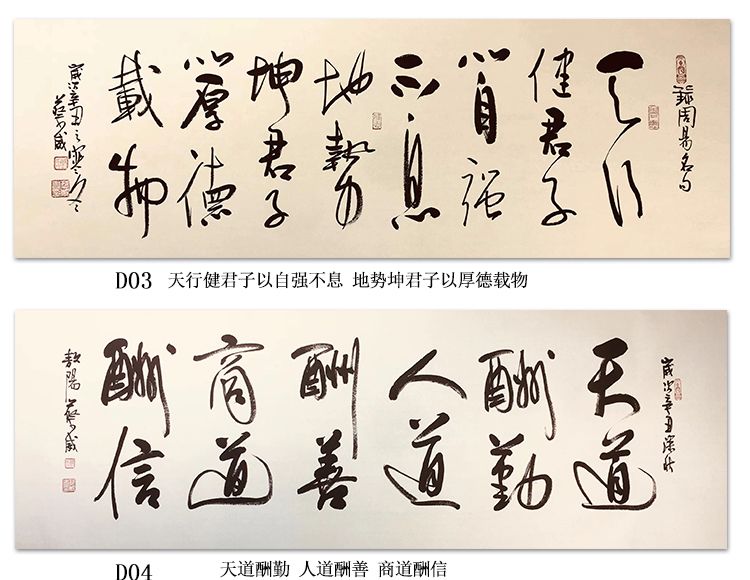 錄周易名句
天行
健君子
以自强
不息
地勢
坤君子
以厚德
載物
歲次辛丑之寒冬
D03 天行健君子以自强不息 地势坤君子以厚德载物
歲次辛丑深秋
天道
酬勤
人道
酬善
商道
酬信
D04 天道酬勤 人道酬善 商道酬信